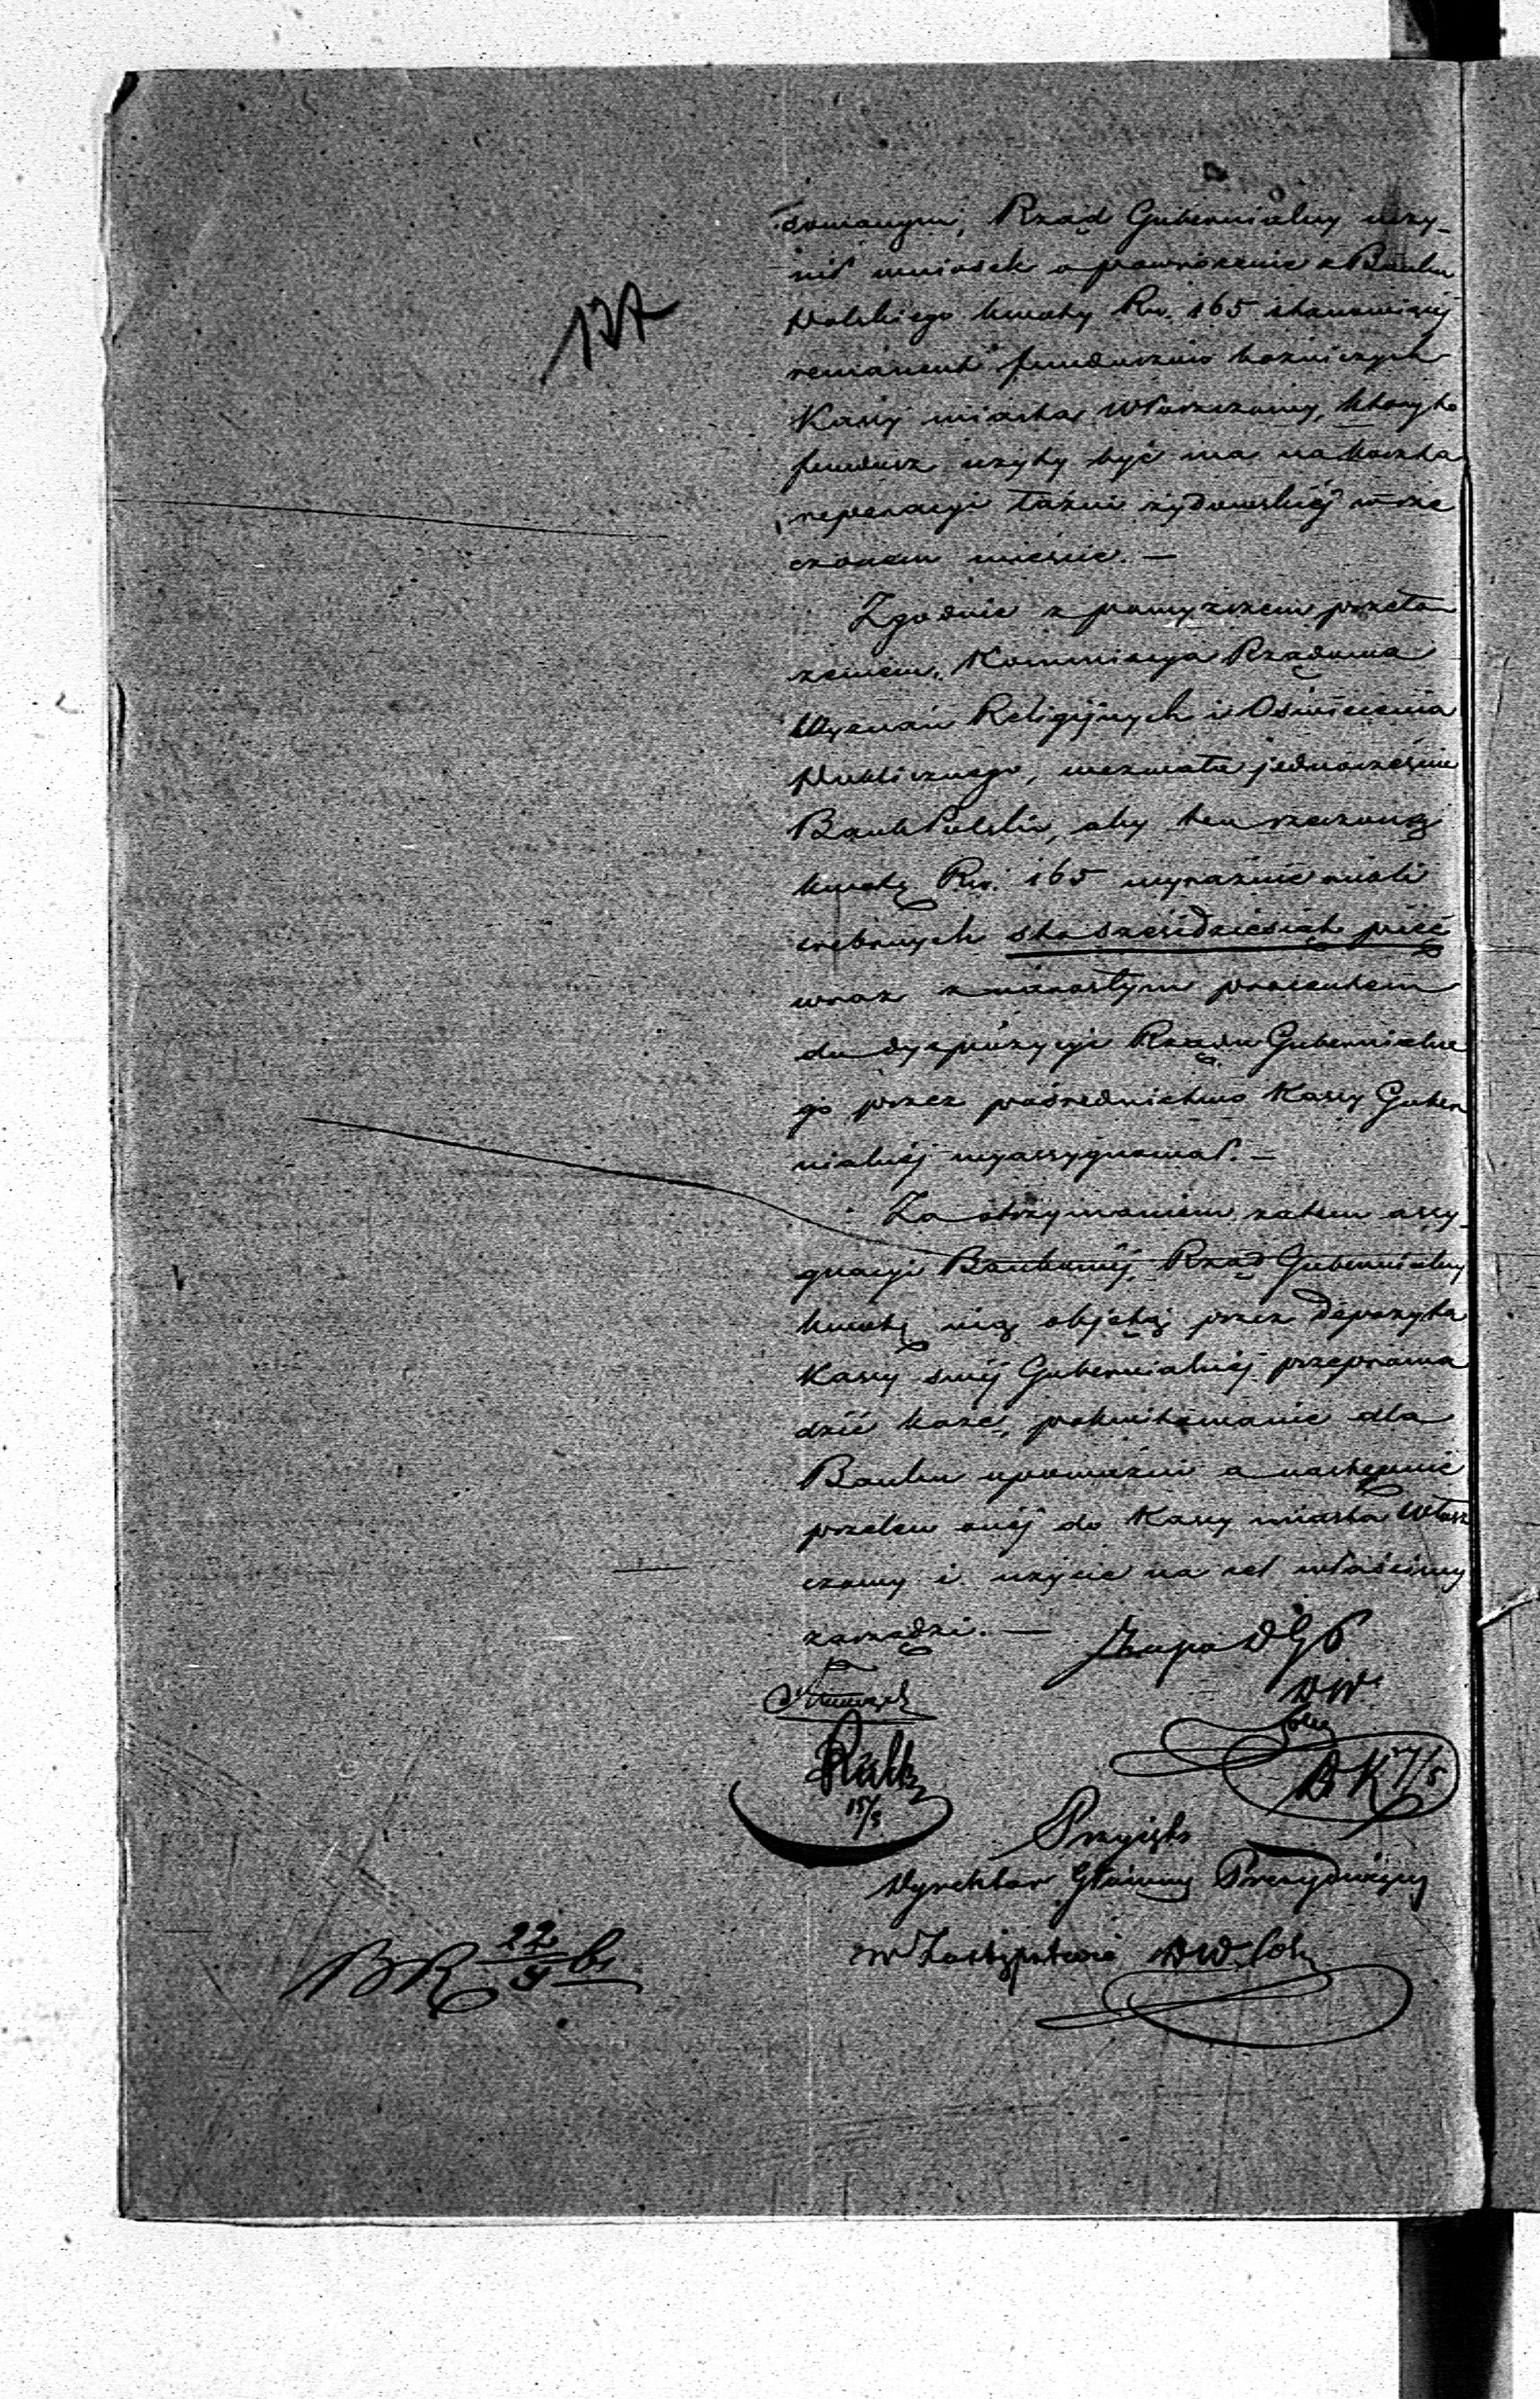 137
sowanym, Rząd Gubernialny uczy-
nił wniosek o powrócenie z Banku
Polskiego kwoty Rsr. 165 stanowiącej
remanent funduszów bożniczych
Kassy miasta Włoszczowy, który to
fundusz użyty być ma na koszta
reperacyi łaźni żydowskiéj w rze
czonem mieście. —
Zgodnie z powyższem przeło
żeniem, Kommissya Rządowa
Wyznań Religijnych i Oświecenia
Publicznego, wezwała jednocześnie
Bank Polski, aby ten rzeczoną
kwotę Rsr. 165 wyraźnie rubli
srebrnych sto sześćdziesiąt pięć
wraz z narosłym procentem
do dyspozycyi Rządu Gubernialne
go przez pośrednictwo Kassy Guber
nialnéj wyassygnował. —
Za otrzymaniem zatem assy-
gnacyi Bankowéj, Rząd Gubernialny
kwotę nią objętą przez Depozyta
Kassy swéj Gubernialnéj przeprowa
dzić każe, pokwitowanie dla
Banku upoważni a następnie
przelew onéj do Kassy miasta Włosz
czowy i użycie na cel właściwy
zarządzi. —
DW
BK 7/5
15/5
Przyjęto
Dyrektor Główny Prezydujący
w Zastępstwie DW
BR 22/5 b.